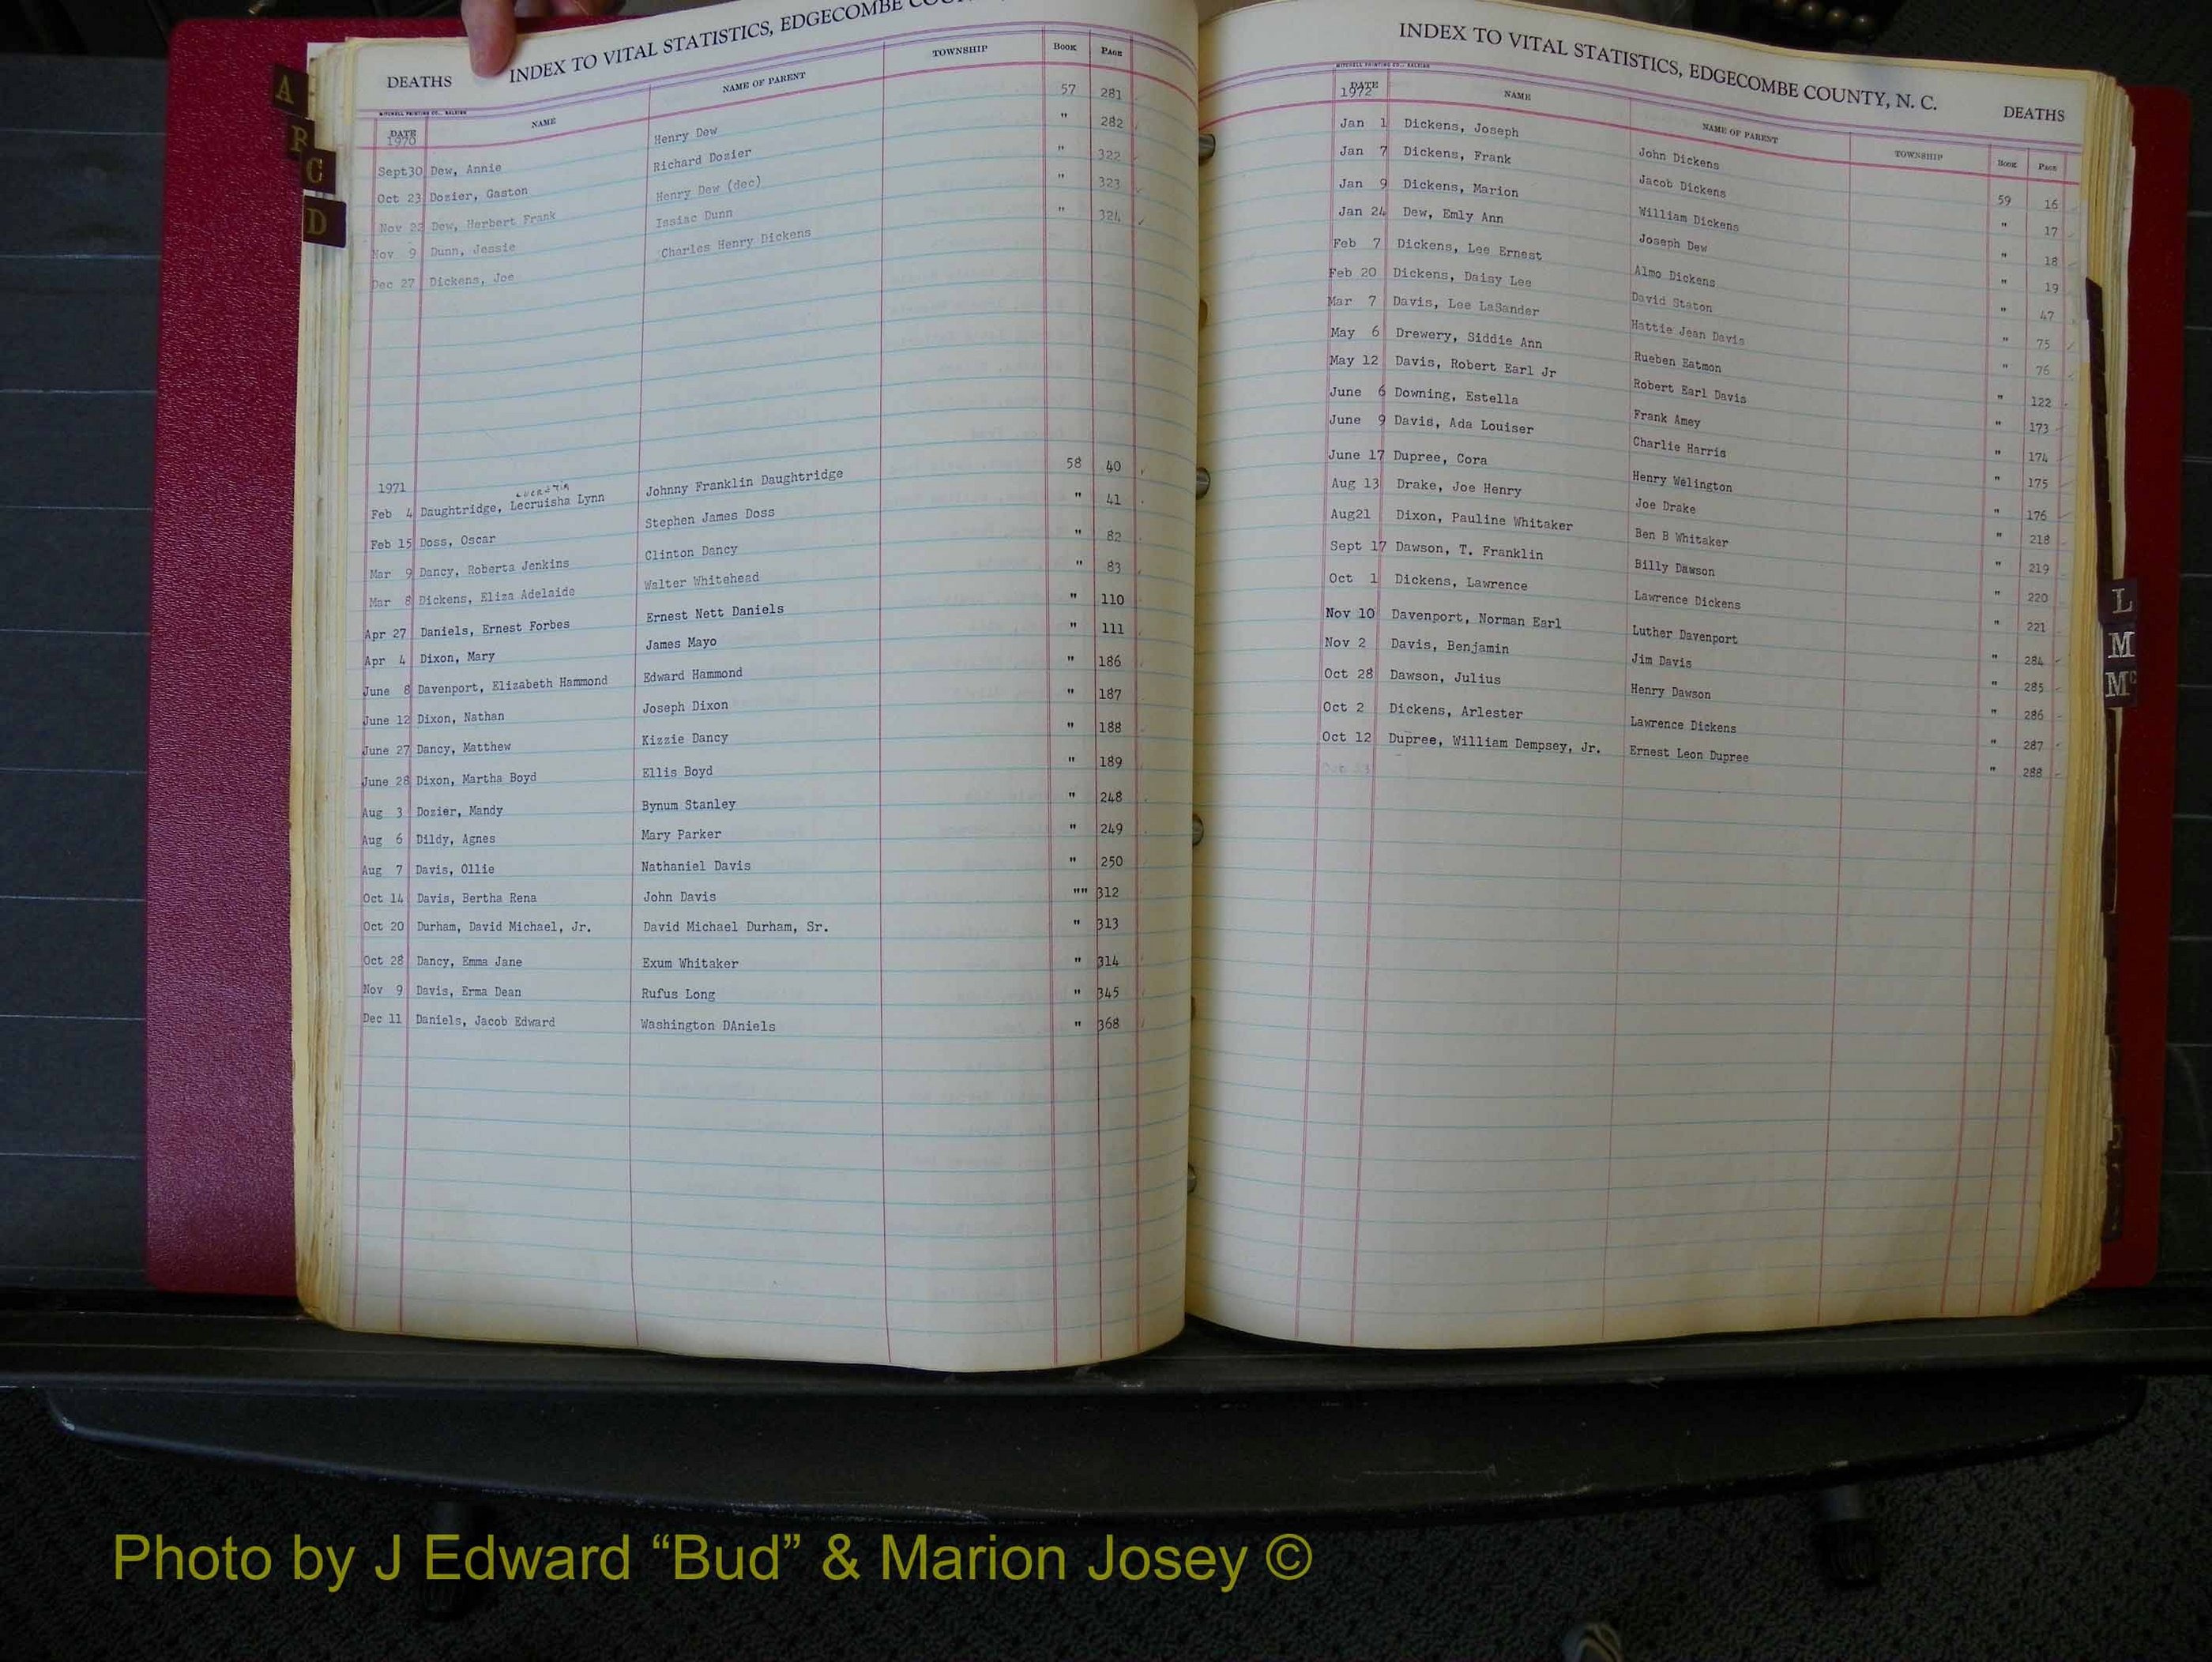 A
B
C
D
DEATHS INDEX TO VITAL STATISTICS, EDGECOMBE
MITCHELL PRINTING CO., RALEIGH
DATE NAME NAME OF PARENT TOWNSHIP BOOK PAGE
1970
Sept30 Dew, Annie Henry Dew 57 281
Oct 23 Dozier, Gaston Richard Dozier " 282
Nov 22 Dew, Herbert Frank Henry Dew (dec) " 322
Nov 9 Dunn, Jessie Issiac Dunn " 323
Dec 27 Dickens, Joe Charles Henry Dickens " 324
1971
Feb 4 Daughtridge, Lecruisha Lynn Johnny Franklin Daughtridge 58 40
Feb 15 Doss, Oscar Stephen James Doss " 41
Mar 9 Dancy, Roberta Jenkins Clinton Dancy " 82
Mar 8 Dickens, Eliza Adelaide Walter Whitehead " 83
Apr 27 Daniels, Ernest Forbes Ernest Nett Daniels " 110
Apr 4 Dixon, Mary James Mayo " 111
June 8 Davenport, Elizabeth Hammond Edward Hammond " 186
June 12 Dixon, Nathan Joseph Dixon " 187
June 27 Dancy, Matthew Kizzie Dancy " 188
June 28 Dixon, Martha Boyd Ellis Boyd " 189
Aug 3 Dozier, Mandy Bynum Stanley " 248
Aug 6 Dildy, Agnes Mary Parker " 249
Aug 7 Davis, Ollie Nathaniel Davis " 250
Oct 14 Davis, Bertha Rena John Davis "" 312
Oct 20 Durham, David Michael, Jr. David Michael Durham, Sr. " 313
Oct 28 Dancy, Emma Jane Exum Whitaker " 314
Nov 9 Davis, Erma Dean Rufus Long " 345
Dec 11 Daniels, Jacob Edward Washington DAniels " 368
INDEX TO VITAL STATISTICS, EDGECOMBE COUNTY, N. C. DEATHS
MITCHELL PRINTING CO., RALEIGH
DATE NAME NAME OF PARENT TOWNSHIP BOOK PAGE
1972
Jan 1 Dickens, Joseph John Dickens 59 16
Jan 7 Dickens, Frank Jacob Dickens " 17
Jan 9 Dickens, Marion William Dickens " 18
Jan 24 Dew, Emly Ann Joseph Dew " 19
Feb 7 Dickens, Lee Ernest Almo Dickens " 47
Feb 20 Dickens, Daisy Lee David Staton " 75
Mar 7 Davis, Lee LaSander Hattie Jean Davis " 76
May 6 Drewery, Siddie Ann Rueben Eatmon " 122
May 12 Davis, Robert Earl Jr Robert Earl Davis " 173
June 6 Downing, Estella Frank Amey " 174
June 9 Davis, Ada Louiser Charlie Harris " 175
June 17 Dupree, Cora Henry Welington " 176
Aug 13 Drake, Joe Henry Joe Drake " 218
Aug21 Dixon, Pauline Whitaker Ben B Whitaker " 219
Sept 17 Dawson, T. Franklin Billy Dawson " 220
Oct 1 Dickens, Lawrence Lawrence Dickens " 221
Nov 10 Davenport, Norman Earl Luther Davenport " 284
Nov 2 Davis, Benjamin Jim Davis " 285
Oct 28 Dawson, Julius Henry Dawson " 286
Oct 2 Dickens, Arlester Lawrence Dickens " 287
Oct 12 Dupree, William Dempsey, Jr. Ernest Leon Dupree " 288
L
M
Mc
Photo by J Edward “Bud” & Marion Josey ©